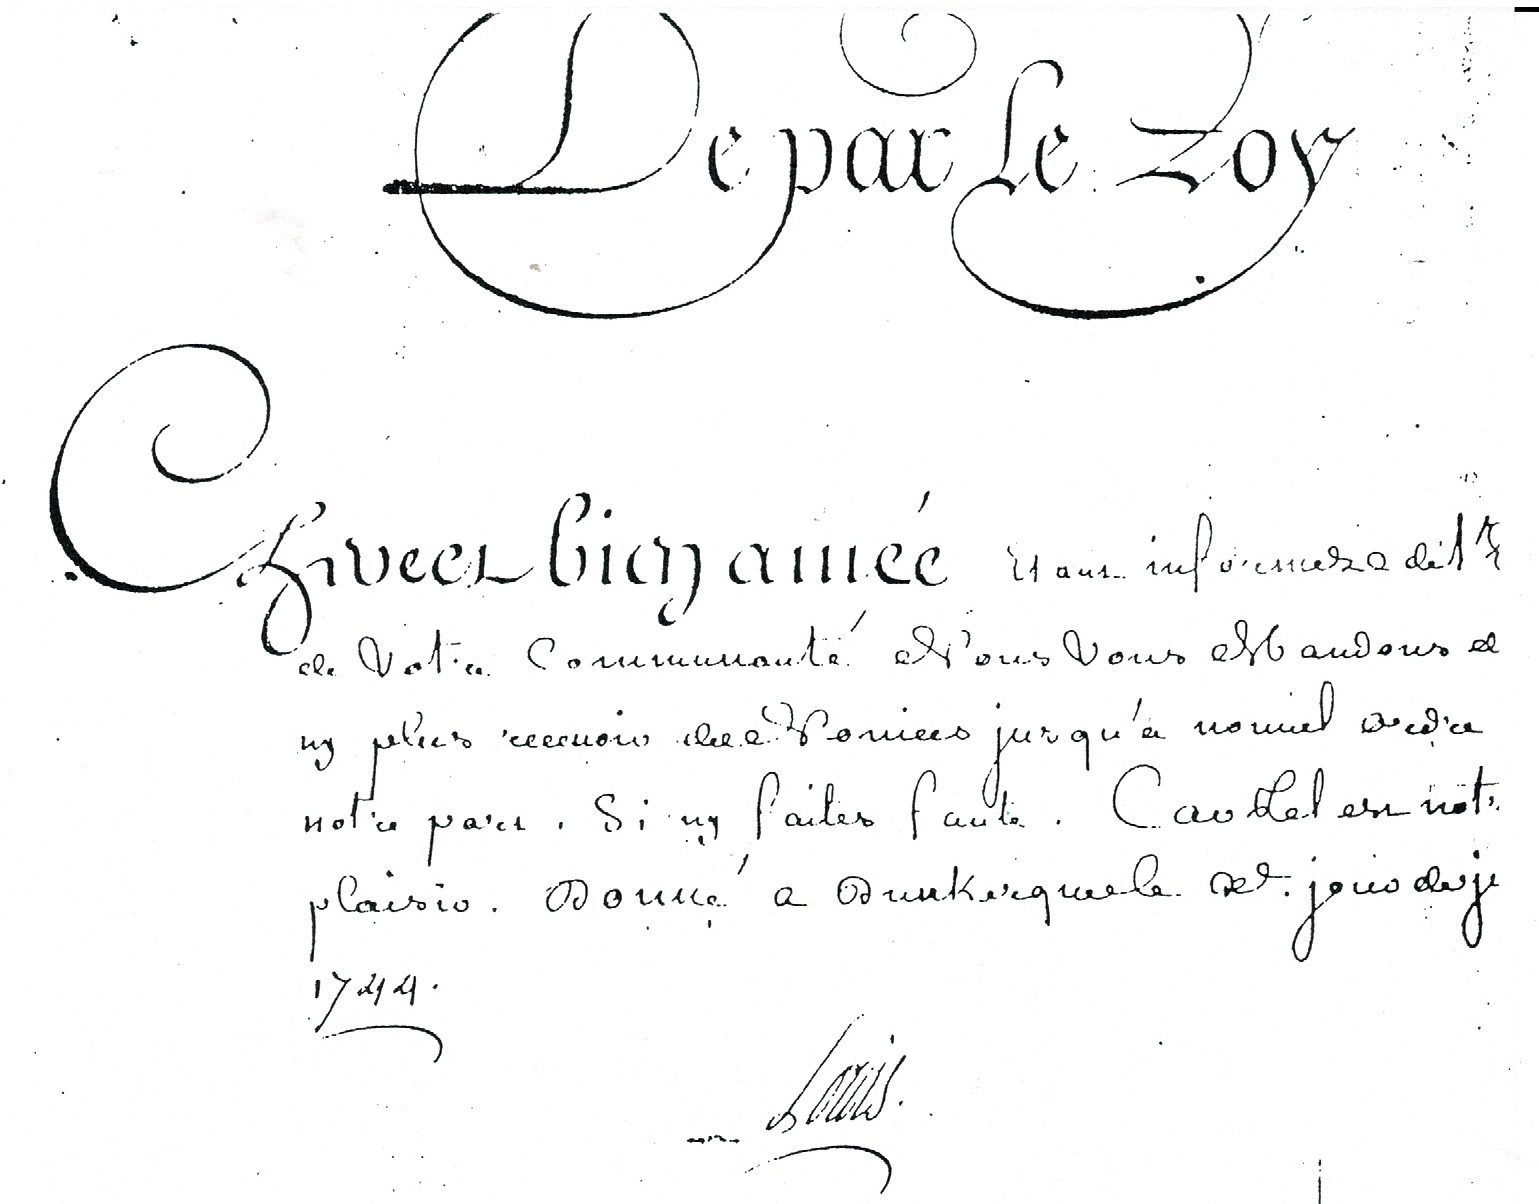 De par Le Roy
Chere et bien amée etant informez de l'
de Votre Communauté Nous Vous Mandons
ny plus recevoir des Novices jusqu'à nouvel ordre
notre part. Si ny faites faute. Car tel est notr
plaisir. Donné a Dunkerque le jour de j
1744.
Louis.